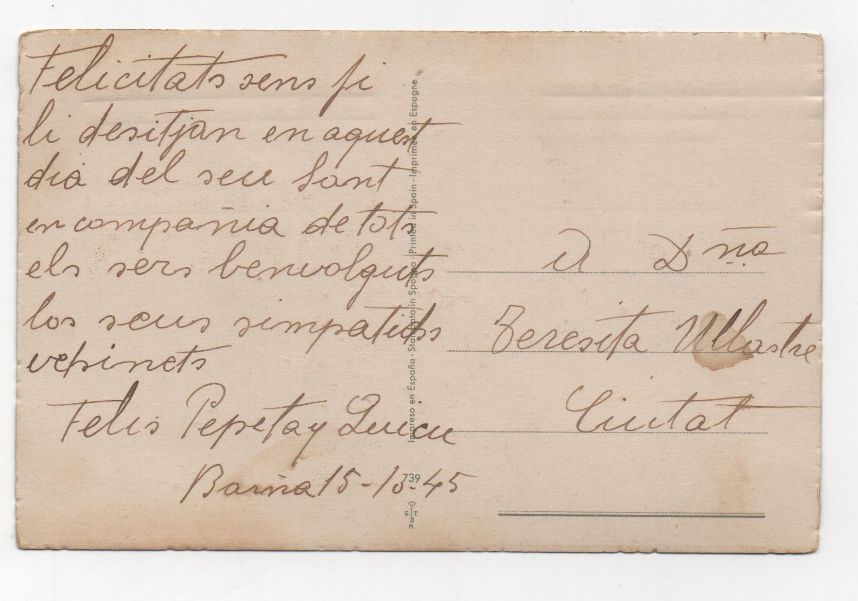 Felicitats sens fi
li desitjan en aquest
dia del seu Sant
en compañia de tots
els sers benvolguts
los seus simpatichs
vehinets
Felis Pepeta y Quicu
Barña 15-10-45
Impreso en España - Printed in Spain - Imprimée en Espagne
739
A Dña
Teresita Ullastre
Ciutat